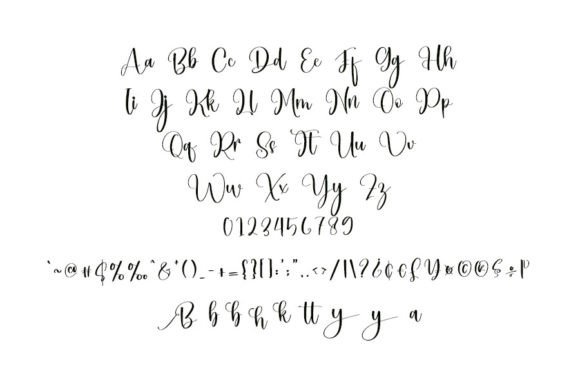 Aa Bb Cc Dd Ee Ff Gg Hh
Ii Jj Kk Ll Mm Nn Oo Pp
Qq Rr Ss Tt Uu Vv
Ww Xx Yy Zz
0123456789
`~@#$%‰^&*()_-+={}[]:;'".,<>/|\?¿¢€£¥¤©®§÷¶
B b b h k tt y y a